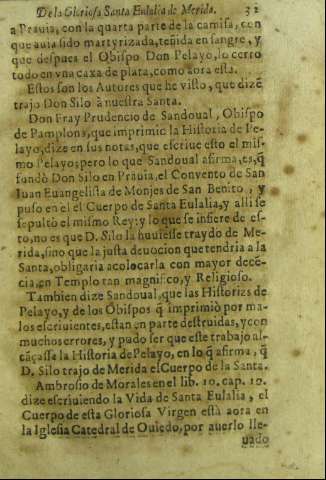 De la Gloriosa Santa Eulalia de Merida. 32
a Prauia, con la quarta parte de la camisa, con
que auia sido martyrizada, teñida en sangre, y
que despues el Obispo Don Pelayo, lo cerro
todo en vna caxa de plata, como aora esta.
Estos son los Autores que he visto, que dizẽ
trajo Don Silo à nuestra Santa.
Don Fray Prudencio de Sandoual, Obispo
de Pamplona, que imprimio la Historia de Pe-
layo, dize en sus notas, que escriue esto el mis-
mo Pelayo; pero lo que Sandoual afirma, es, q̃
fundò Don Silo en Prauia, el Conuento de San
Iuan Euangelista de Monjes de San Benito, y
puso en el el Cuerpo de Santa Eulalia, y alli se
sepultò el mismo Rey: y lo que se infiere de es-
to, no es que D. Silo la huuiesse traydo de Me-
rida, sino que la justa deuocion que tendria a la
Santa, obligaria acolocarla con mayor decẽ-
cia, en Templo tan magnifico, y Religioso.
Tambien dize Sandoual, que las Historias de
Pelayo, y de los Obispos q̃ imprimiò por ma-
los escriuientes, estan en parte destruidas, y con
muchos errores, y pudo ser que este trabajo al-
cãçasse la Historia de Pelayo, en lo q̃ afirma, q̃
D. Silo trajo de Merida el Cuerpo de la Santa.
Ambrosio de Morales en el lib. 10. cap. 10.
dize escriuiendo la Vida de Santa Eulalia, el
Cuerpo de esta Gloriosa Virgen està aora en
la Iglesia Catedral de Ouiedo, por auerlo lle-
uado